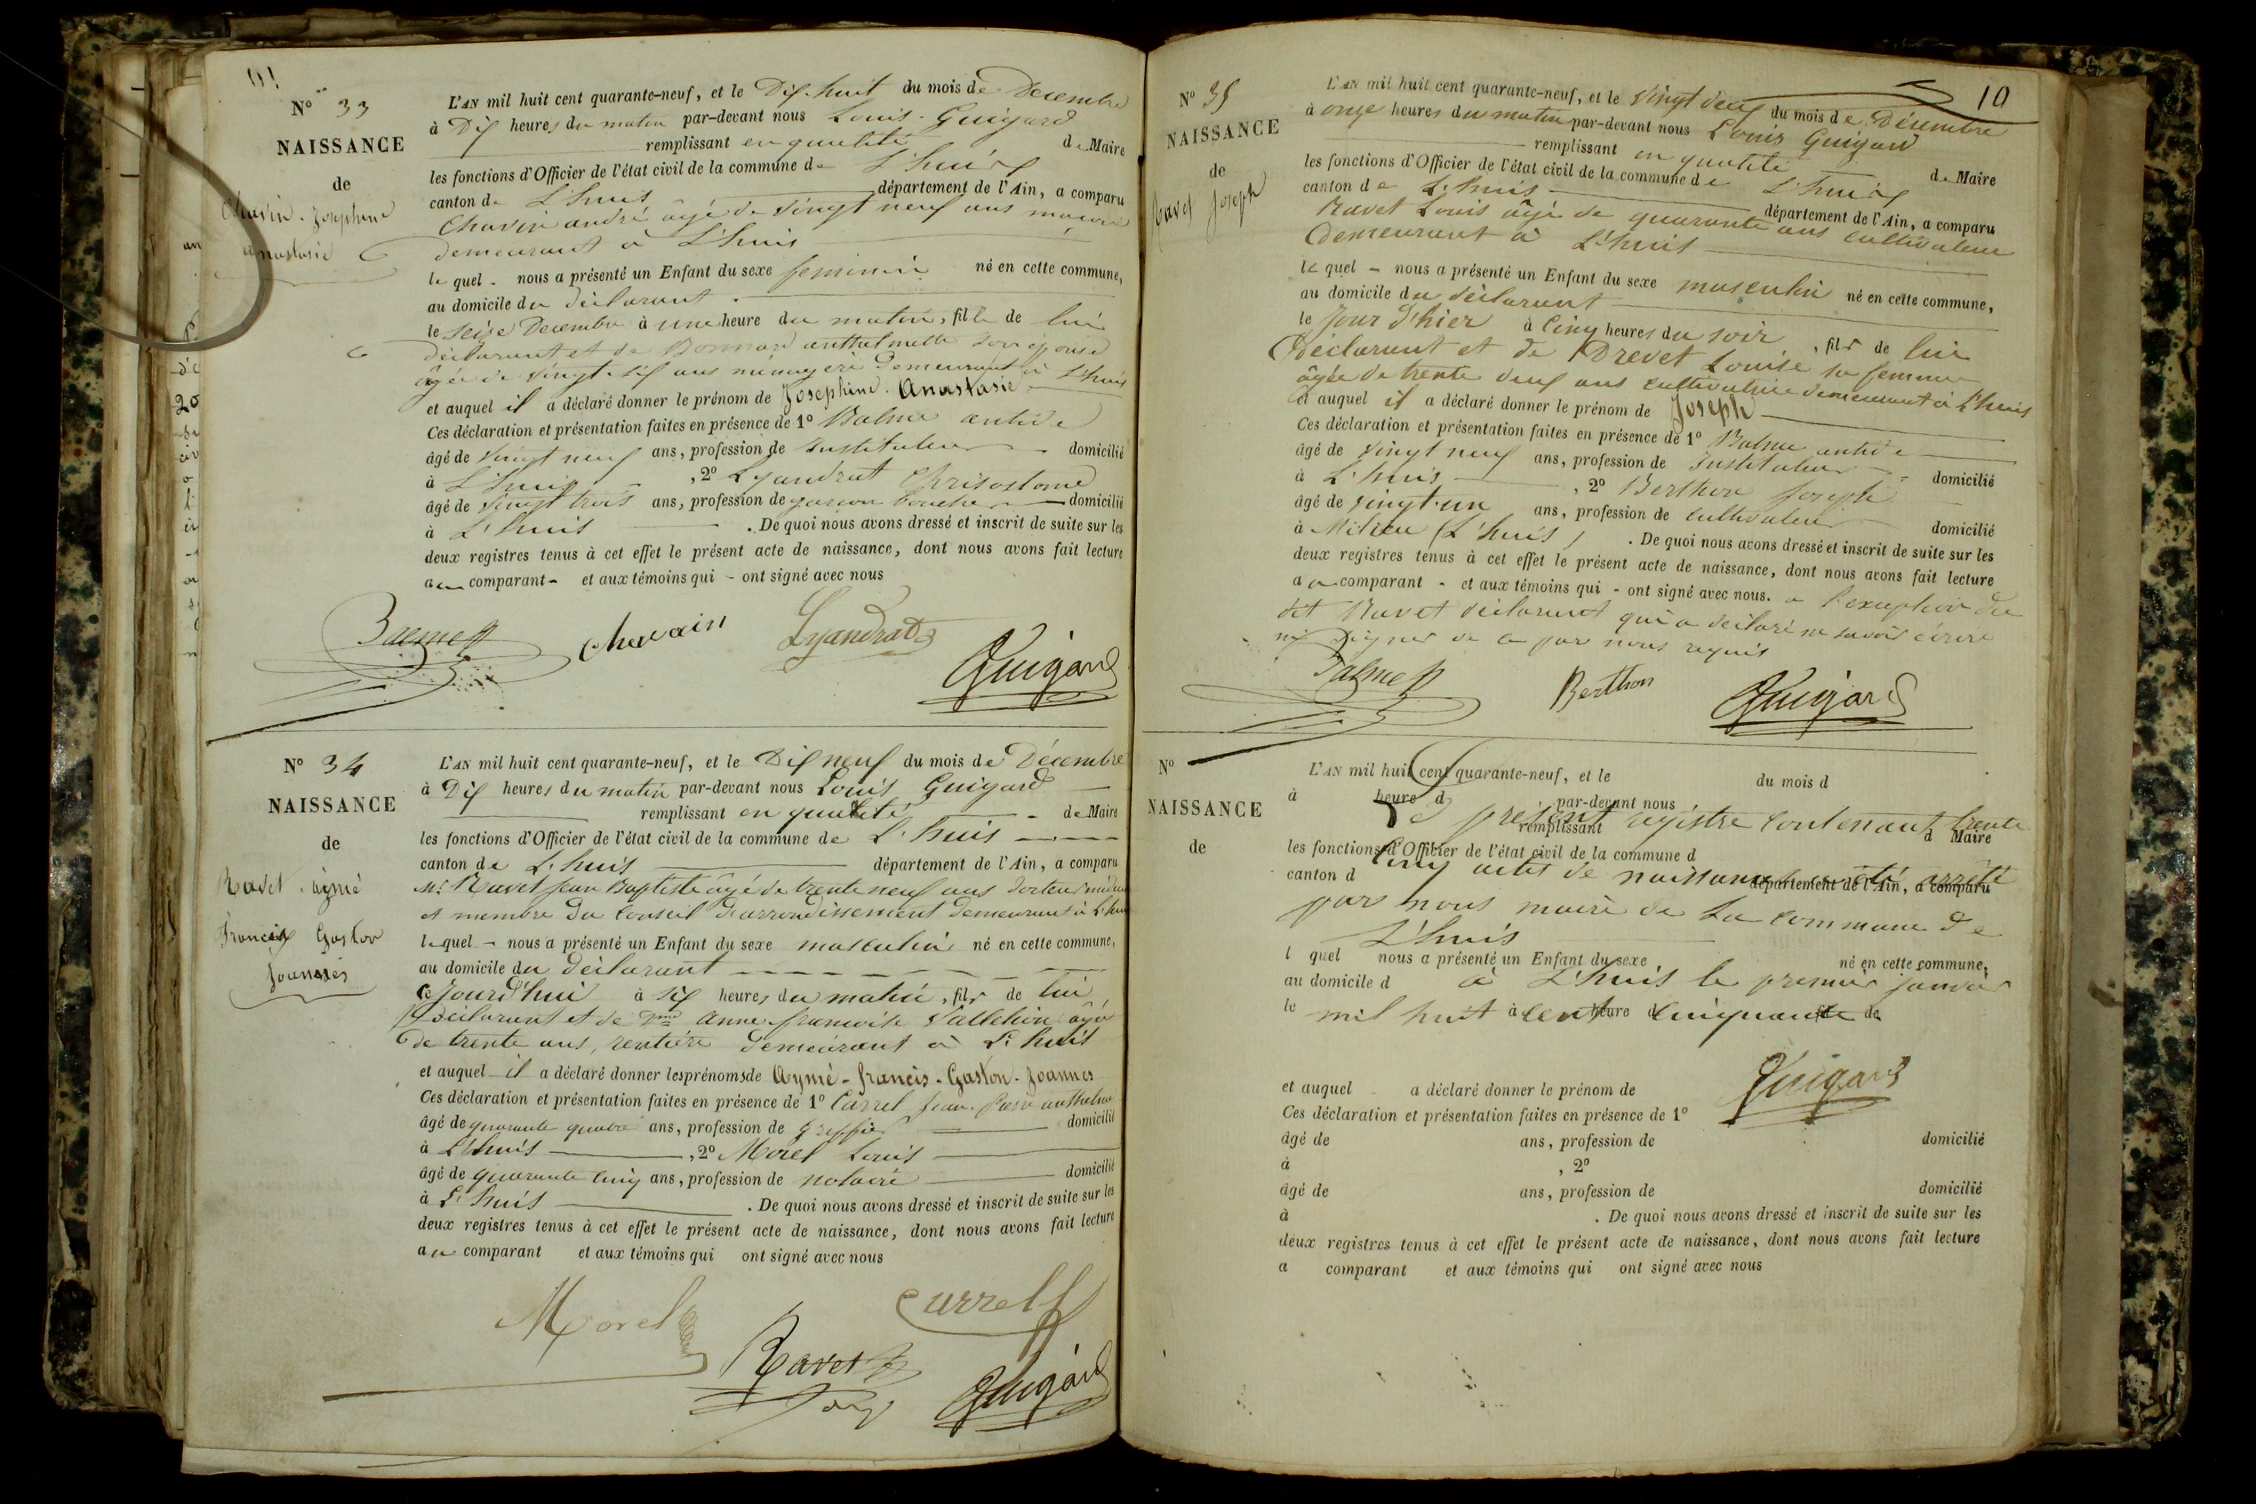 N° 33
NAISSANCE
de
Chavin. Josephine
anastasie
L'AN mil huit cent quarante-neuf, et le Dix-huit du mois de Decembre
à Dix heures du matin par-devant nous Louis Guigard
remplissant en qualité de Maire
les fonctions d'Officier de l'état civil de la commune de L'huis
canton de L'huis département de l'Ain, a comparu
Chavin andré âgé de vingt neuf ans
demeurant à L'huis
le quel - nous a présenté un Enfant du sexe feminin né en cette commune,
au domicile du déclarant
le seize Decembre à une heure du matin, fille de lui
déclarant et de Bonnard anthelmette son épouse
âgée de vingt-six ans ménagère demeurant à L'huis
et auquel il a déclaré donner le prénom de Josephine. Anastasie
Ces déclaration et présentation faites en présence de 1° Balme antide
âgé de vingt neuf ans, profession de instituteur domicilié
à L'huis, 2° Lyandrat Chrisostome
âgé de vingt trois ans, profession de garcon boucher domicilié
à L'huis. De quoi nous avons dressé et inscrit de suite sur les
deux registres tenus à cet effet le présent acte de naissance, dont nous avons fait lecture
au comparant - et aux témoins qui - ont signé avec nous
Balme chavain Lyandrat
Guigard
N° 34
NAISSANCE
de
Ravet. aymé
Francis Gaston
Joannes
L'AN mil huit cent quarante-neuf, et le Dix neuf du mois de Décembre
à Dix heures du matin par-devant nous Louis Guigard
remplissant en qualité de Maire
les fonctions d'Officier de l'état civil de la commune de L'huis
canton de L'huis département de l'Ain, a comparu
Mr Ravet Jean Baptiste âgé de trente neuf ans docteur médecin
et membre du Conseil d'arrondissement demeurant à L'huis
le quel - nous a présenté un Enfant du sexe masculin né en cette commune,
au domicile du déclarant
ce Jourd'hui à six heures du matin, fils de lui
déclarant et de Dme Anne francoise âgée
de trente ans, rentière demeurant à L'huis
et auquel il a déclaré donner les prénoms de Aymé - francis - Gaston - Joannes
Ces déclaration et présentation faites en présence de 1° Carrel Jean anthelme
âgé de quarante quatre ans, profession de greffier domicilié
à L'huis, 2° Morel Louis
âgé de quarante cinq ans, profession de notaire domicilié
à L'huis. De quoi nous avons dressé et inscrit de suite sur les
deux registres tenus à cet effet le présent acte de naissance, dont nous avons fait lecture
au comparant et aux témoins qui ont signé avec nous
Morel Currel
Ravet
Guigard
10
N° 35
NAISSANCE
de
Ravet Joseph
L'AN mil huit cent quarante-neuf, et le vingt deux du mois de Décembre
à onze heures du matin par-devant nous Louis Guigard
remplissant en qualité de Maire
les fonctions d'Officier de l'état civil de la commune de L'huis
canton de L'huis département de l'Ain, a comparu
Ravet Louis âgé de quarante ans cultivateur
demeurant à L'huis
le quel - nous a présenté un Enfant du sexe masculin né en cette commune,
au domicile du déclarant
le Jour d'hier à cinq heures du soir, fils de lui
Déclarant et de Drevet Louise sa femme
âgée de trente deux ans cultivatrice demeurant à L'huis
et auquel il a déclaré donner le prénom de Joseph
Ces déclaration et présentation faites en présence de 1° Balme antide
âgé de vingt neuf ans, profession de Instituteur domicilié
à L'huis, 2° Berthon Joseph
âgé de vingt-un ans, profession de cultivateur domicilié
à Milieu (L'huis). De quoi nous avons dressé et inscrit de suite sur les
deux registres tenus à cet effet le présent acte de naissance, dont nous avons fait lecture
au comparant - et aux témoins qui - ont signé avec nous. a l'exception du
dit Ravet déclarant qui a déclaré ne savoir écrire
ni signer de ce par nous requis
Balme Berthon Guigard
N°
NAISSANCE
de
L'AN mil huit cent quarante-neuf, et le du mois d
à heure d par-devant nous
Le présent registre contenant trente
remplissant d Maire
les fonctions d'Officier de l'état civil de la commune d
cinq actes de naissances a été arrêté
canton d département de l'Ain, a comparu
par nous maire de la commune de
L'huis
l quel nous a présenté un Enfant du sexe né en cette commune,
au domicile d
à L'huis le premier janvier
le à heure d fil de
mil huit cent cinquante
Guigard
et auquel a déclaré donner le prénom de
Ces déclaration et présentation faites en présence de 1°
âgé de ans, profession de domicilié
à , 2°
âgé de ans, profession de domicilié
à . De quoi nous avons dressé et inscrit de suite sur les
deux registres tenus à cet effet le présent acte de naissance, dont nous avons fait lecture
a comparant et aux témoins qui ont signé avec nous